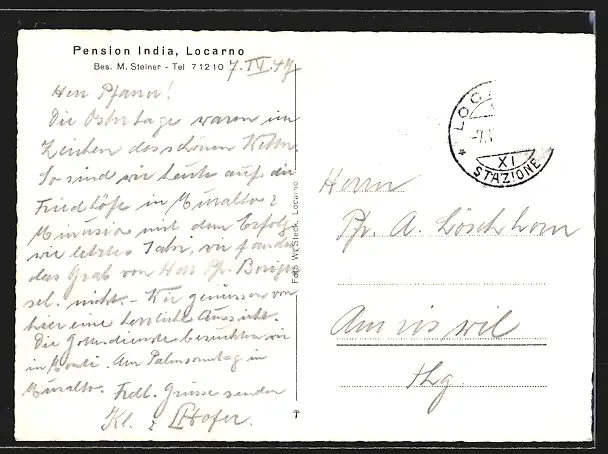 Pension India, Locarno
Bes. M. Steiner - Tel 71210
7. IV. 49
Herr Pfarrer!
Die Ostertage waren im
Zeichen des schönen
So sind wir heute auf die
Friedhöfe in Muralto &
Minusio mit dem Erfolg
wie letztes Jahr, wir fanden
das Grab von Hrn Pfr.
sel. nicht. - Wir geniessen von
hier eine herrliche Aussicht.
Die Gottesdienste besuchten wir
in Monti. Am Palmsonntag in
Muralto. Frdl. Grüsse senden
Kl. & Hofer.
Foto W. Steck, Locarno
LOC
-7.
XI
STAZIONE
Herrn
Pfr. A. Löschhorn
Amriswil
Thg.